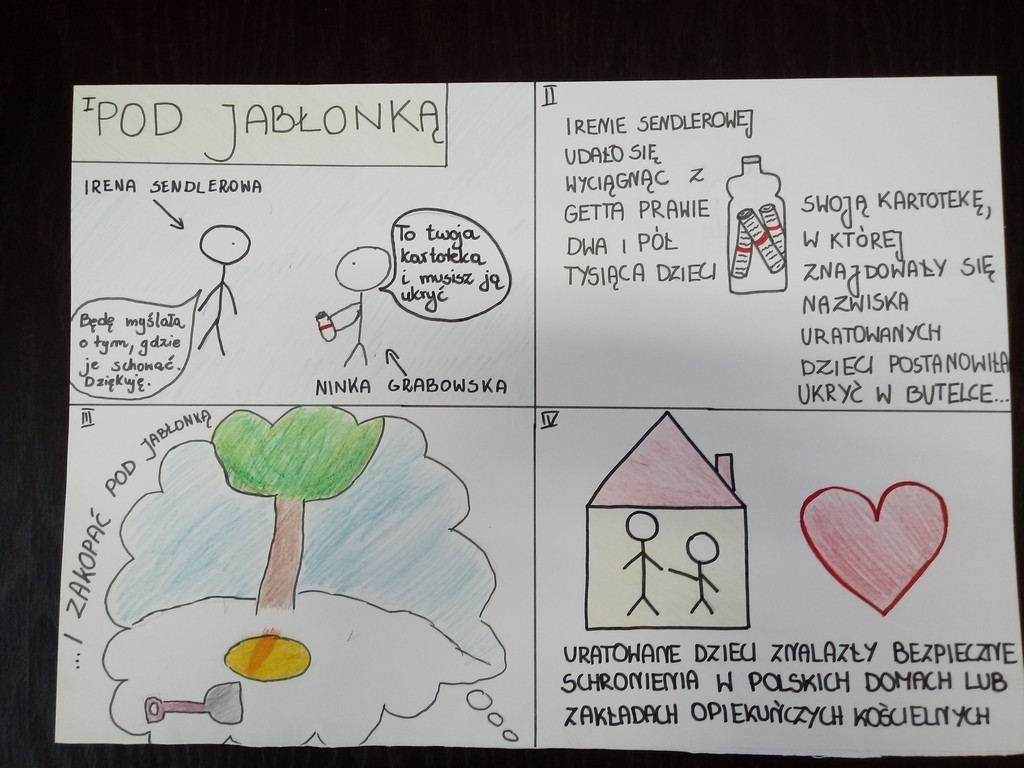 I
POD JABŁONKĄ
IRENA SENDLEROWA
To twoja
kartoteka
i musisz ją
ukryć
Będę myślała
o tym, gdzie
je schować.
Dziękuję.
NINKA GRABOWSKA
II
IRENIE SENDLEROWEJ
UDAŁO SIĘ
WYCIĄGNĄC Z
GETTA PRAWIE
DWA I PÓŁ
TYSIĄCA DZIECI
SWOJĄ KARTOTEKĘ,
W KTÓREJ
ZNAJDOWAŁY SIĘ
NAZWISKA
URATOWANYCH
DZIECI POSTANOWIŁA
UKRYĆ W BUTELCE...
III
...I ZAKOPAĆ POD JABŁONKĄ
IV
URATOWANE DZIECI ZNALAZŁY BEZPIECZNE
SCHRONIENIA W POLSKICH DOMACH LUB
ZAKŁADACH OPIEKUŃCZYCH KOŚCIELNYCH